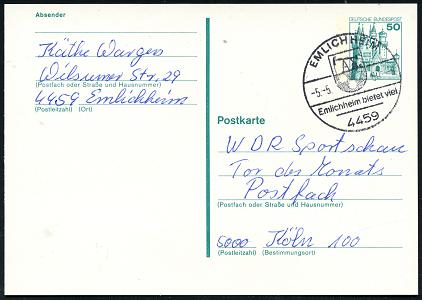 Absender
Käthe Wargers
Wilsumer Str. 29
(Postfach oder Straße und Hausnummer)
4459 Emlichheim
(Postleitzahl) (Ort)
DEUTSCHE BUNDESPOST
50
EMLICHHEIM
-5.-5.
Emlichheim bietet viel
4459
Postkarte
WDR Sportschau
Tor des Monats
Postfach
(Postfach oder Straße und Hausnummer)
5000 Köln 100
(Postleitzahl) (Bestimmungsort)